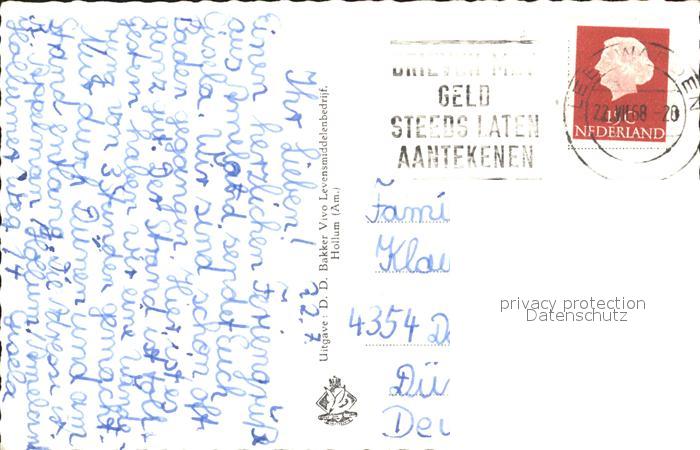 Ihr Lieben! 22.7.
Einen herzlichen Feriengruß
aus Ameland sendet Euch
Gisela. Wir sind schon oft
Baden gegangen. Hier ist es
ganz gut. Der Strand ist toll.
Gestern haben wir eine
von 3 Stunden gemacht.
durch Dünen und am
Strand entlang. Die Adresse ist
Hollum/Ameland
Uitgave: D. D. Bakker Vivo Levensmiddelenbedrijf,
Hollum (Am.)
BRIEVEN MET
GELD
STEEDS LATEN
AANTEKENEN
LEEUWARDEN
22.VII.68 -20
NEDERLAND
Fami
Klau
4354 D
Dü
Deu
privacy protection
Datenschutz